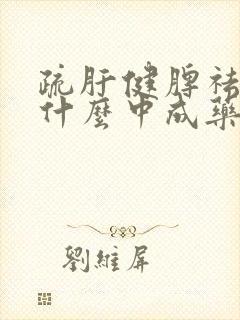 疏肝健脾祛
什麼中成藥
劉維屏